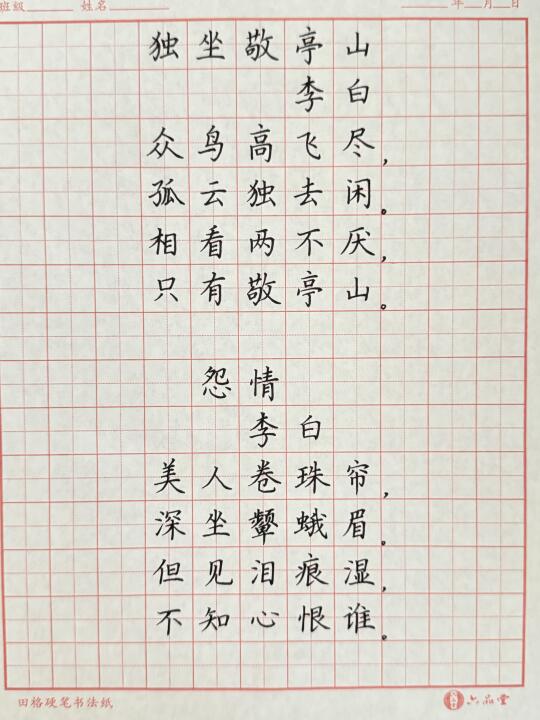 班级 姓名 年 月 日
独坐敬亭山
李白
众鸟高飞尽，
孤云独去闲。
相看两不厌，
只有敬亭山。
怨情
李白
美人卷珠帘，
深坐颦蛾眉。
但见泪痕湿，
不知心恨谁。
田格硬笔书法纸 六品堂